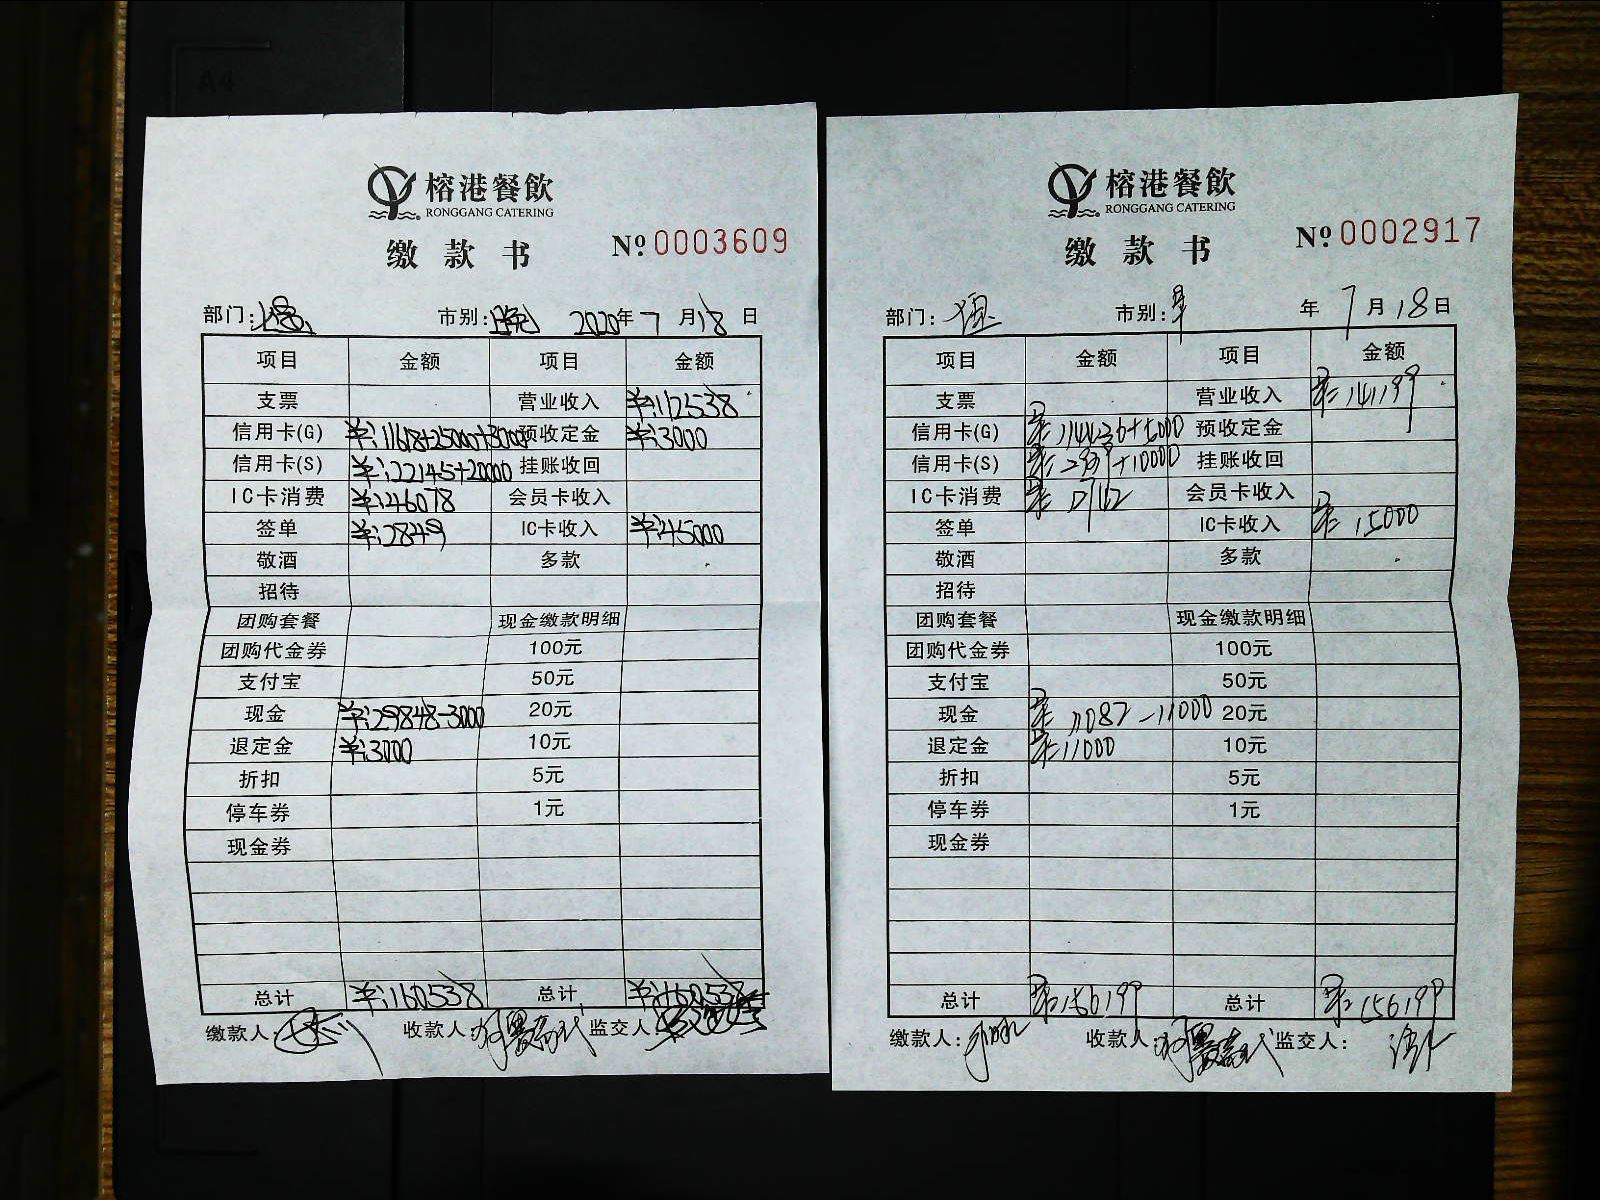 榕港餐飲
RONGGANG CATERING
缴款书 No 0003609
部门: 市别:晚 2020年7月18日
项目 金额 项目 金额
支票 营业收入 ¥:112538
信用卡(G) ¥:11618+25000+3000 预收定金 ¥:3000
信用卡(S) ¥:22145+20000 挂账收回
IC卡消费 ¥:46078 会员卡收入
签单 ¥:2849 IC卡收入 ¥:45000
敬酒 多款
招待
团购套餐 现金缴款明细
团购代金券 100元
支付宝 50元
现金 ¥:29848-3000 20元
退定金 ¥:3000 10元
折扣 5元
停车券 1元
现金券
总计 ¥:160538 总计 ¥:160538
缴款人: 收款人: 监交人:
榕港餐飲
RONGGANG CATERING
缴款书 No 0002917
部门: 市别: 年7月18日
项目 金额 项目 金额
支票 营业收入 141199
信用卡(G) 预收定金
信用卡(S) 挂账收回
IC卡消费 会员卡收入
签单 IC卡收入 15000
敬酒 多款
招待
团购套餐 现金缴款明细
团购代金券 100元
支付宝 50元
现金 11087-11000 20元
退定金 11000 10元
折扣 5元
停车券 1元
现金券
总计 156199 总计 156199
缴款人: 收款人: 监交人: